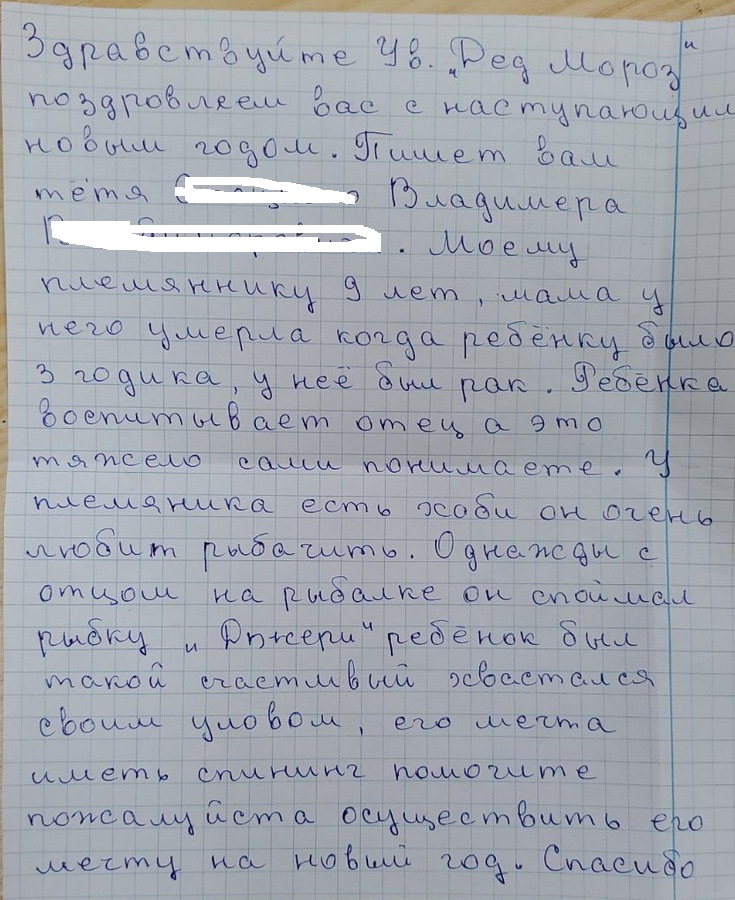 Здравствуйте Ув. „Дед Мороз"
поздровлеем вас с наступающим
новым годом. Пишет вам
тётя Владимера
. Моему
племяннику 9 лет, мама у
него умерла когда ребёнку было
3 годика, у неё был рак. Ребёнка
воспитывает отец а это
тяжело сами понимаете. У
племяника есть хоби он очень
любит рыбачить. Однажды с
отцом на рыбалке он споймал
рыбку „Джери" ребёнок был
такой счастливый хвастался
своим уловом, его мечта
иметь спининг помогите
пожалуйста осуществить его
мечту на новый год. Спасибо